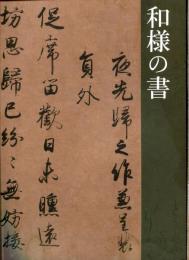 和様の書
夜光歸之作兼呈
員外
促席留歡日未曛遠
坊思歸已紛々無妨接